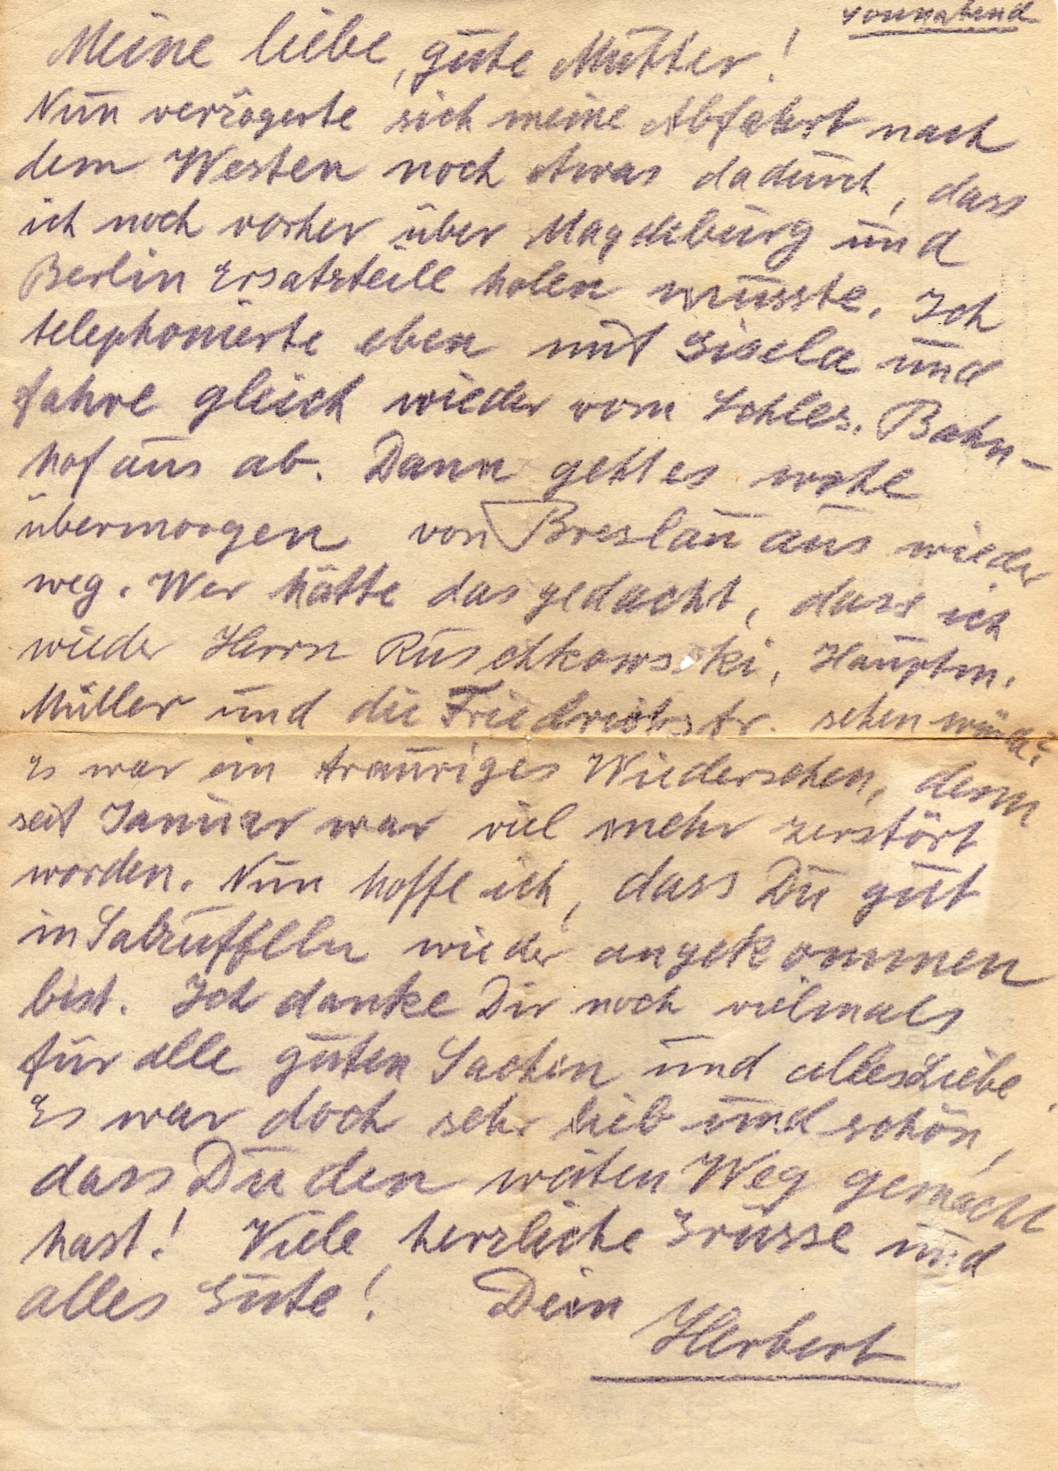 Sonnabend
Meine liebe, gute Mutter!
Nun verzögerte sich meine Abfahrt nach
dem Westen noch etwas dadurch, dass
ich noch vorher über Magdeburg und
Berlin Ersatzteile holen musste. Ich
telephonierte eben mit Gisela und
fahre gleich wieder vom Schles. Bahn-
hof aus ab. Dann geht es wohl
übermorgen von Breslau aus wieder
weg. Wer hätte das gedacht, dass ich
wieder Herrn Ruschkowski, Hauptm.
Müller und die Friedrichstr. sehen würde?
Es war ein trauriges Wiedersehen, denn
seit Januar war viel mehr zerstört
worden. Nun hoffe ich, dass Du gut
in Salzuffeln wieder angekommen
bist. Ich danke Dir noch vielmals
für alle guten Sachen und alles Liebe.
Es war doch sehr lieb und schön,
dass Du den weiten Weg gemacht
hast! Viele, herzliche Grüsse und
alles Gute! Dein
Herbert